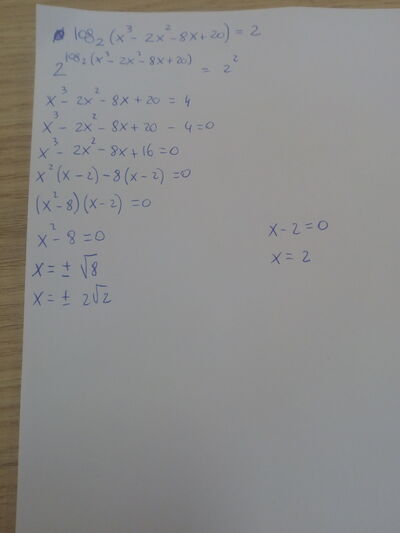 log₂(x³ - 2x² - 8x + 20) = 2
2^(log₂(x³ - 2x² - 8x + 20)) = 2²
x³ - 2x² - 8x + 20 = 4
x³ - 2x² - 8x + 20 - 4 = 0
x³ - 2x² - 8x + 16 = 0
x²(x - 2) - 8(x - 2) = 0
(x² - 8)(x - 2) = 0
x² - 8 = 0
x = ± √8
x = ± 2√2
x - 2 = 0
x = 2